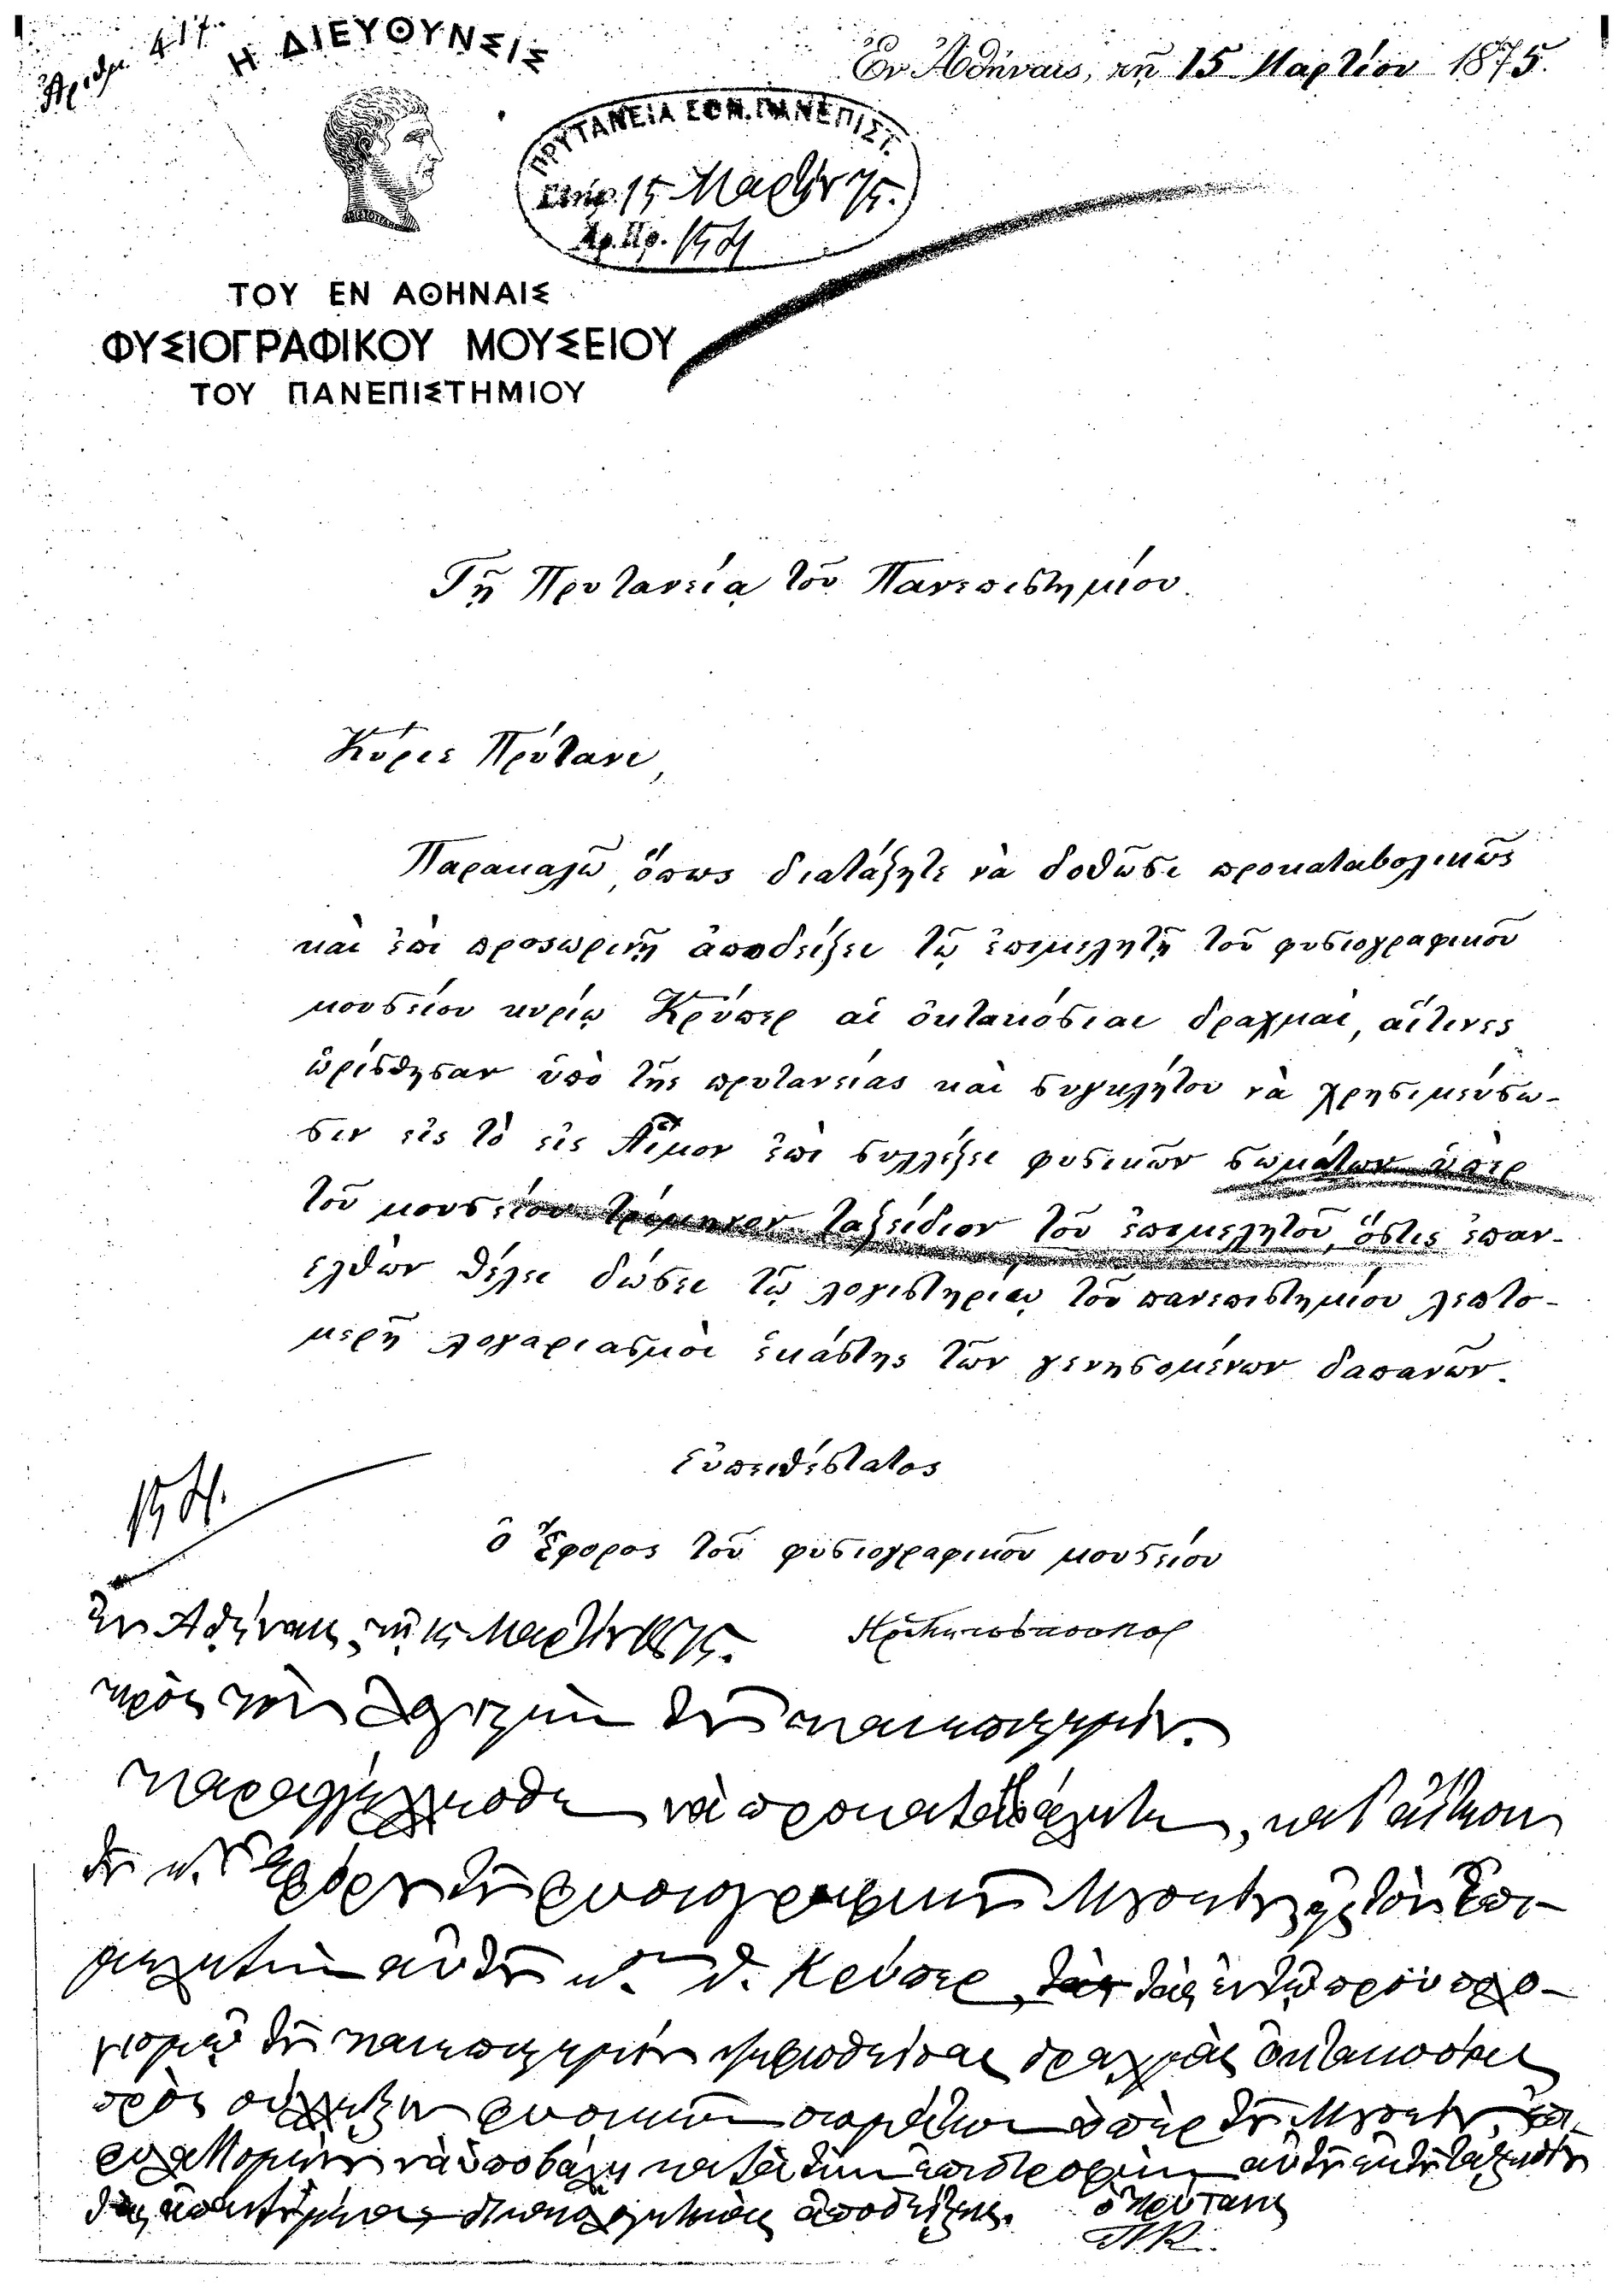 Ἀριθμ. 417.
Η ΔΙΕΥΘΥΝΣΙΣ
Ἐν Ἀθήναις, τῇ 15 Μαρτίου 1875.
ΠΡΥΤΑΝΕΙΑ ΕΘΝ. ΠΑΝΕΠΙΣΤ.
15 Μαρτίου 75.
Ἀρ. Πρ.
ΤΟΥ ΕΝ ΑΘΗΝΑΙΣ
ΦΥΣΙΟΓΡΑΦΙΚΟΥ ΜΟΥΣΕΙΟΥ
ΤΟΥ ΠΑΝΕΠΙΣΤΗΜΙΟΥ
Τῇ Πρυτανείᾳ τοῦ Πανεπιστημίου.
Κύριε Πρύτανι,
Παρακαλῶ, ὅπως διατάξητε νὰ δοθῶσι προκαταβολικῶς
καὶ ἐπὶ προσωρινῇ ἀποδείξει τῷ ἐπιμελητῇ τοῦ φυσιογραφικοῦ
μουσείου κυρίῳ Κρύπερ αἱ ὀκτακόσιαι δραχμαὶ, αἵτινες
ὡρίσθησαν ὑπὸ τῆς πρυτανείας καὶ συγκλήτου νὰ χρησιμεύσω-
σιν εἰς τὸ εἰς Αἷμον ἐπὶ συλλέξει φυσικῶν σωμάτων ὑπὲρ
τοῦ μουσείου τρίμηνον ταξείδιον τοῦ ἐπιμελητοῦ, ὅστις ἐπαν-
ελθὼν θέλει δώσει τῷ λογιστηρίῳ τοῦ πανεπιστημίου λεπτο-
μερῆ λογαριασμὸν ἑκάστης τῶν γενησομένων δαπανῶν.
εὐπειθέστατος
ὁ Ἔφορος τοῦ φυσιογραφικοῦ μουσείου
Ἐν Ἀθήναις, τῇ 15 Μαρτίου 1875.
πρὸς τὸν Λογιστὴν τοῦ πανεπιστημίου.
Παραγγέλλεσθε νὰ προκαταβάλητε, κατ' αἴτησιν
τοῦ κ. Ἐφόρου τοῦ φυσιογραφικοῦ Μουσείου, εἰς τὸν Ἐπι-
μελητὴν αὐτοῦ κ. Θ. Κρύπερ, τὰς ἐν τῷ προϋπολο-
γισμῷ τοῦ πανεπιστημίου ψηφισθείσας δραχμὰς ὀκτακοσίας
πρὸς σύλλεξιν φυσικῶν σωμάτων ὑπὲρ τοῦ Μουσείου,
νὰ ὑποβάλῃ κατὰ τὴν ἐπιστροφὴν αὐτοῦ ἐκ τοῦ ταξειδίου
τὰς ἀπαιτουμένας δικαιολογητικὰς ἀποδείξεις.
ὁ Πρύτανις